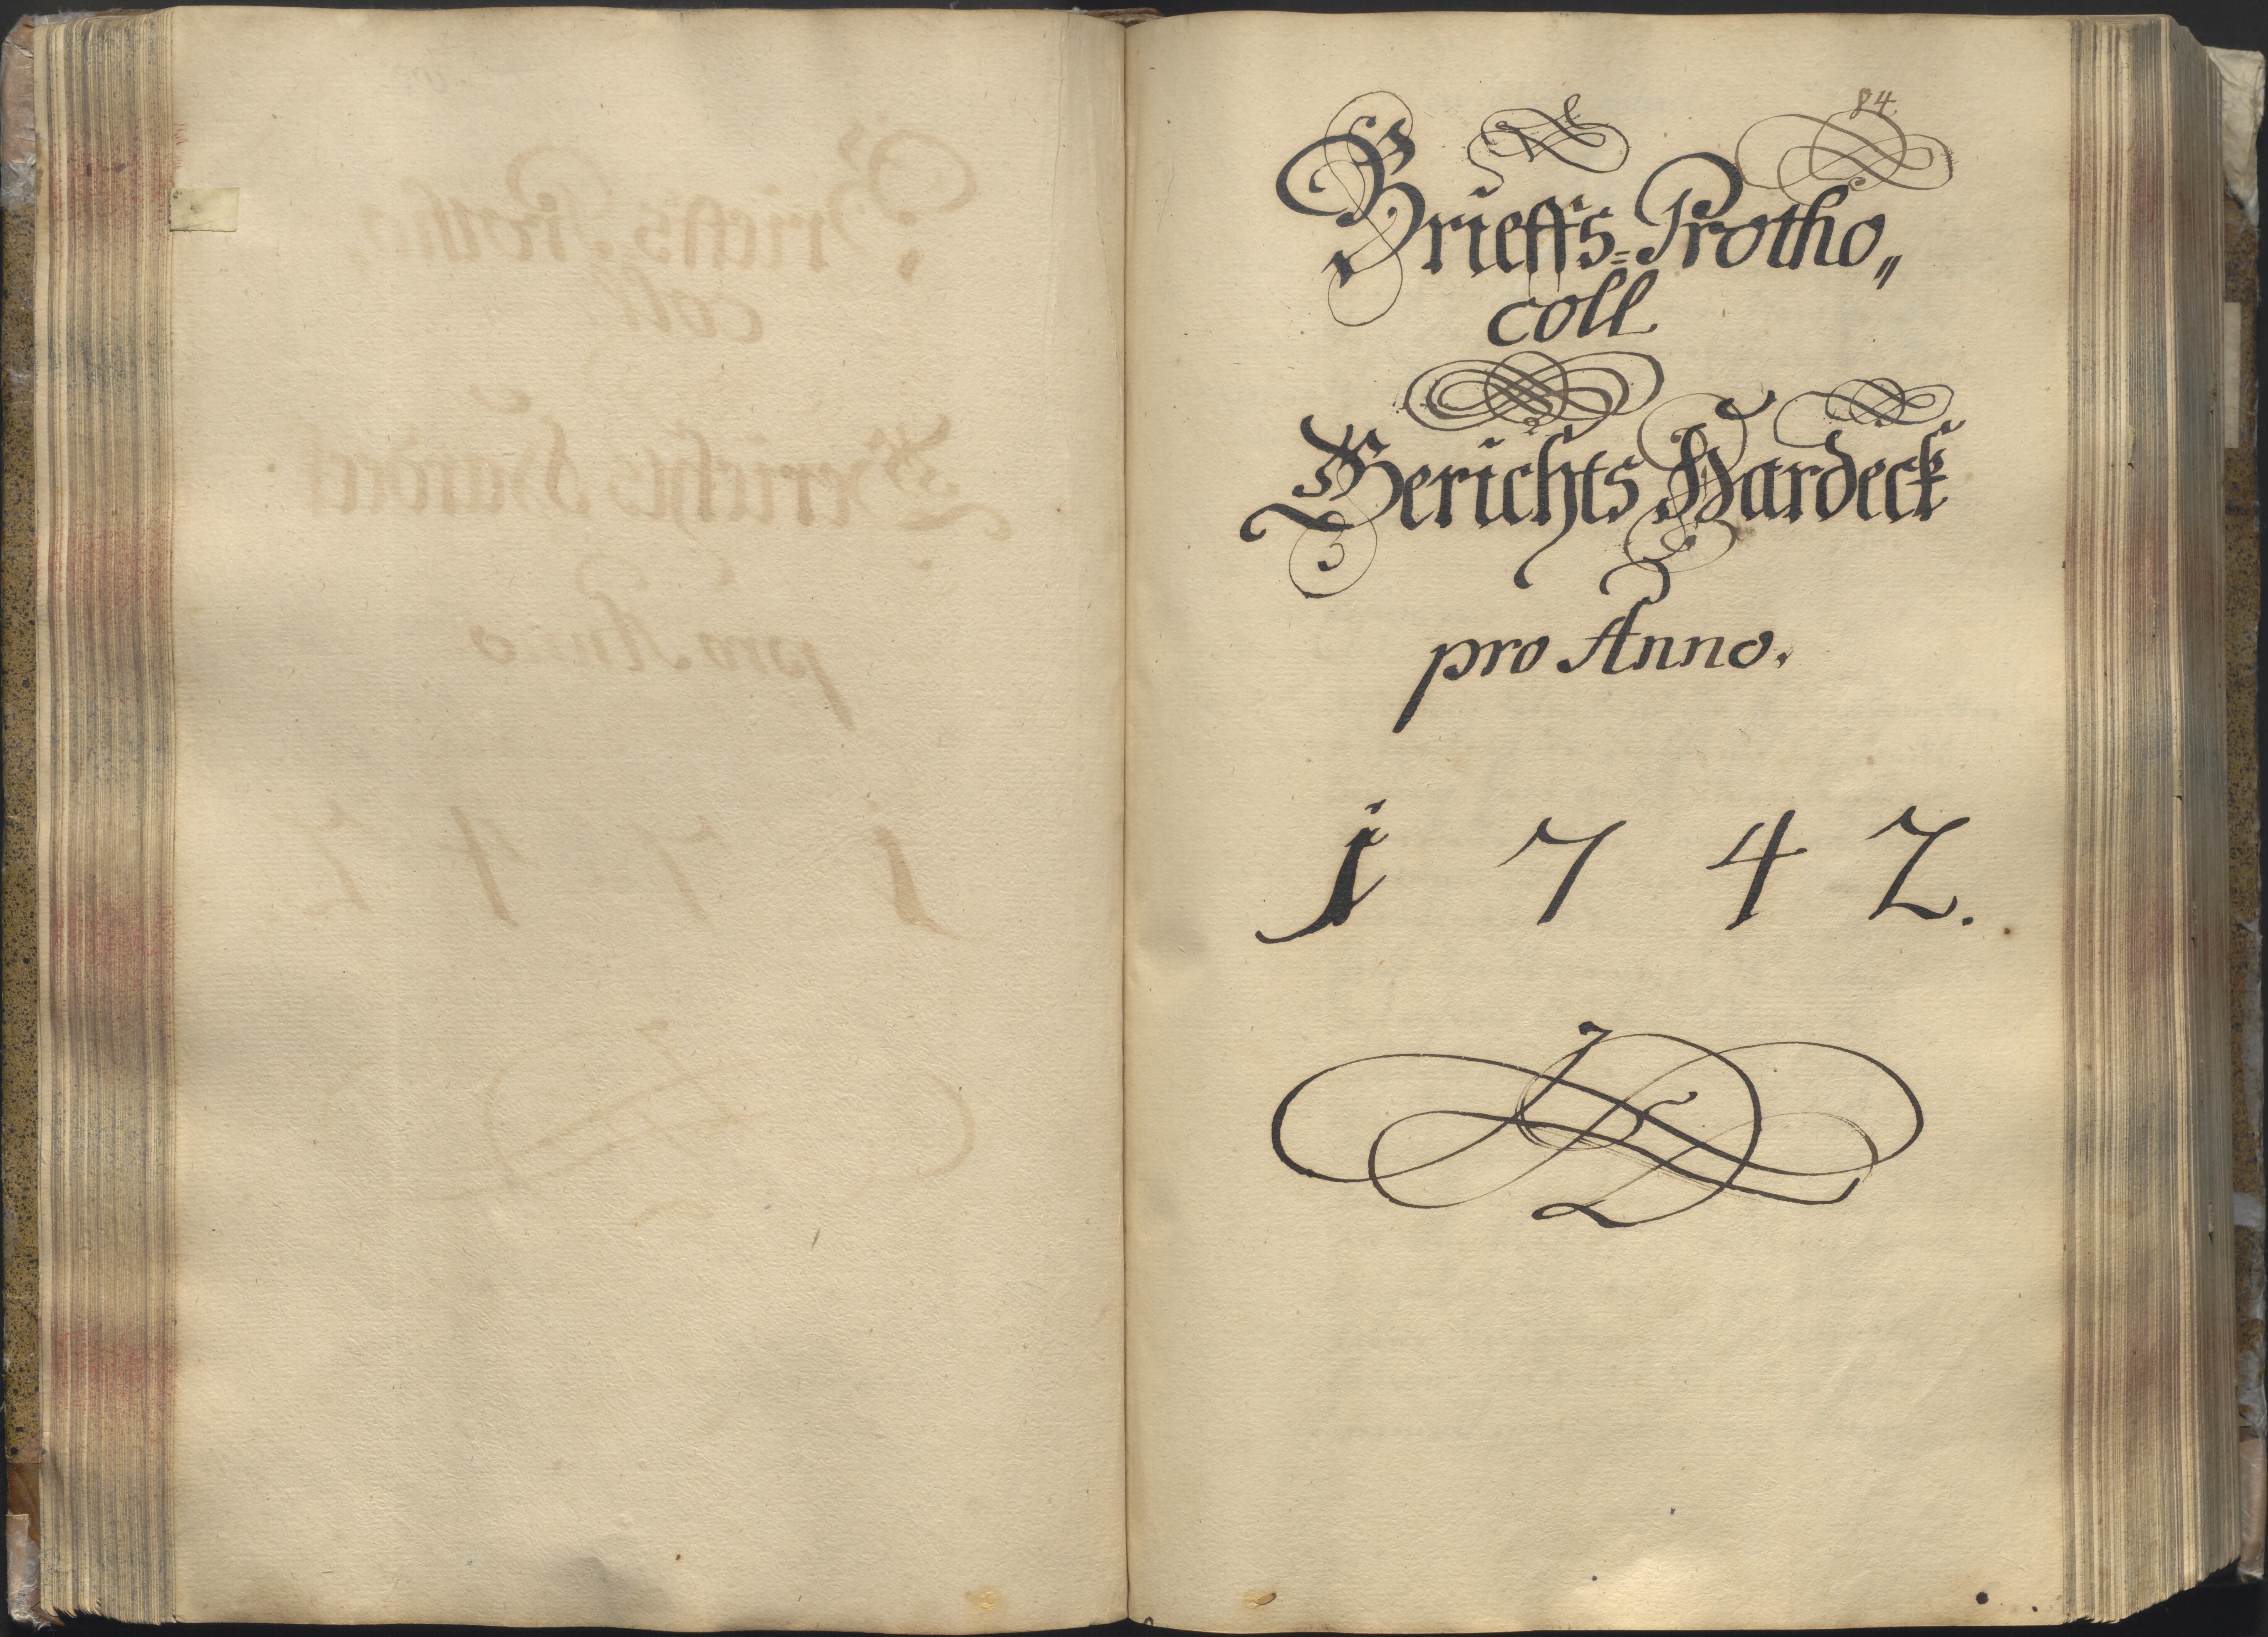 84.
Brieffs=Protho„
coll
Gerichts Hardeck
pro Anno.
1742.